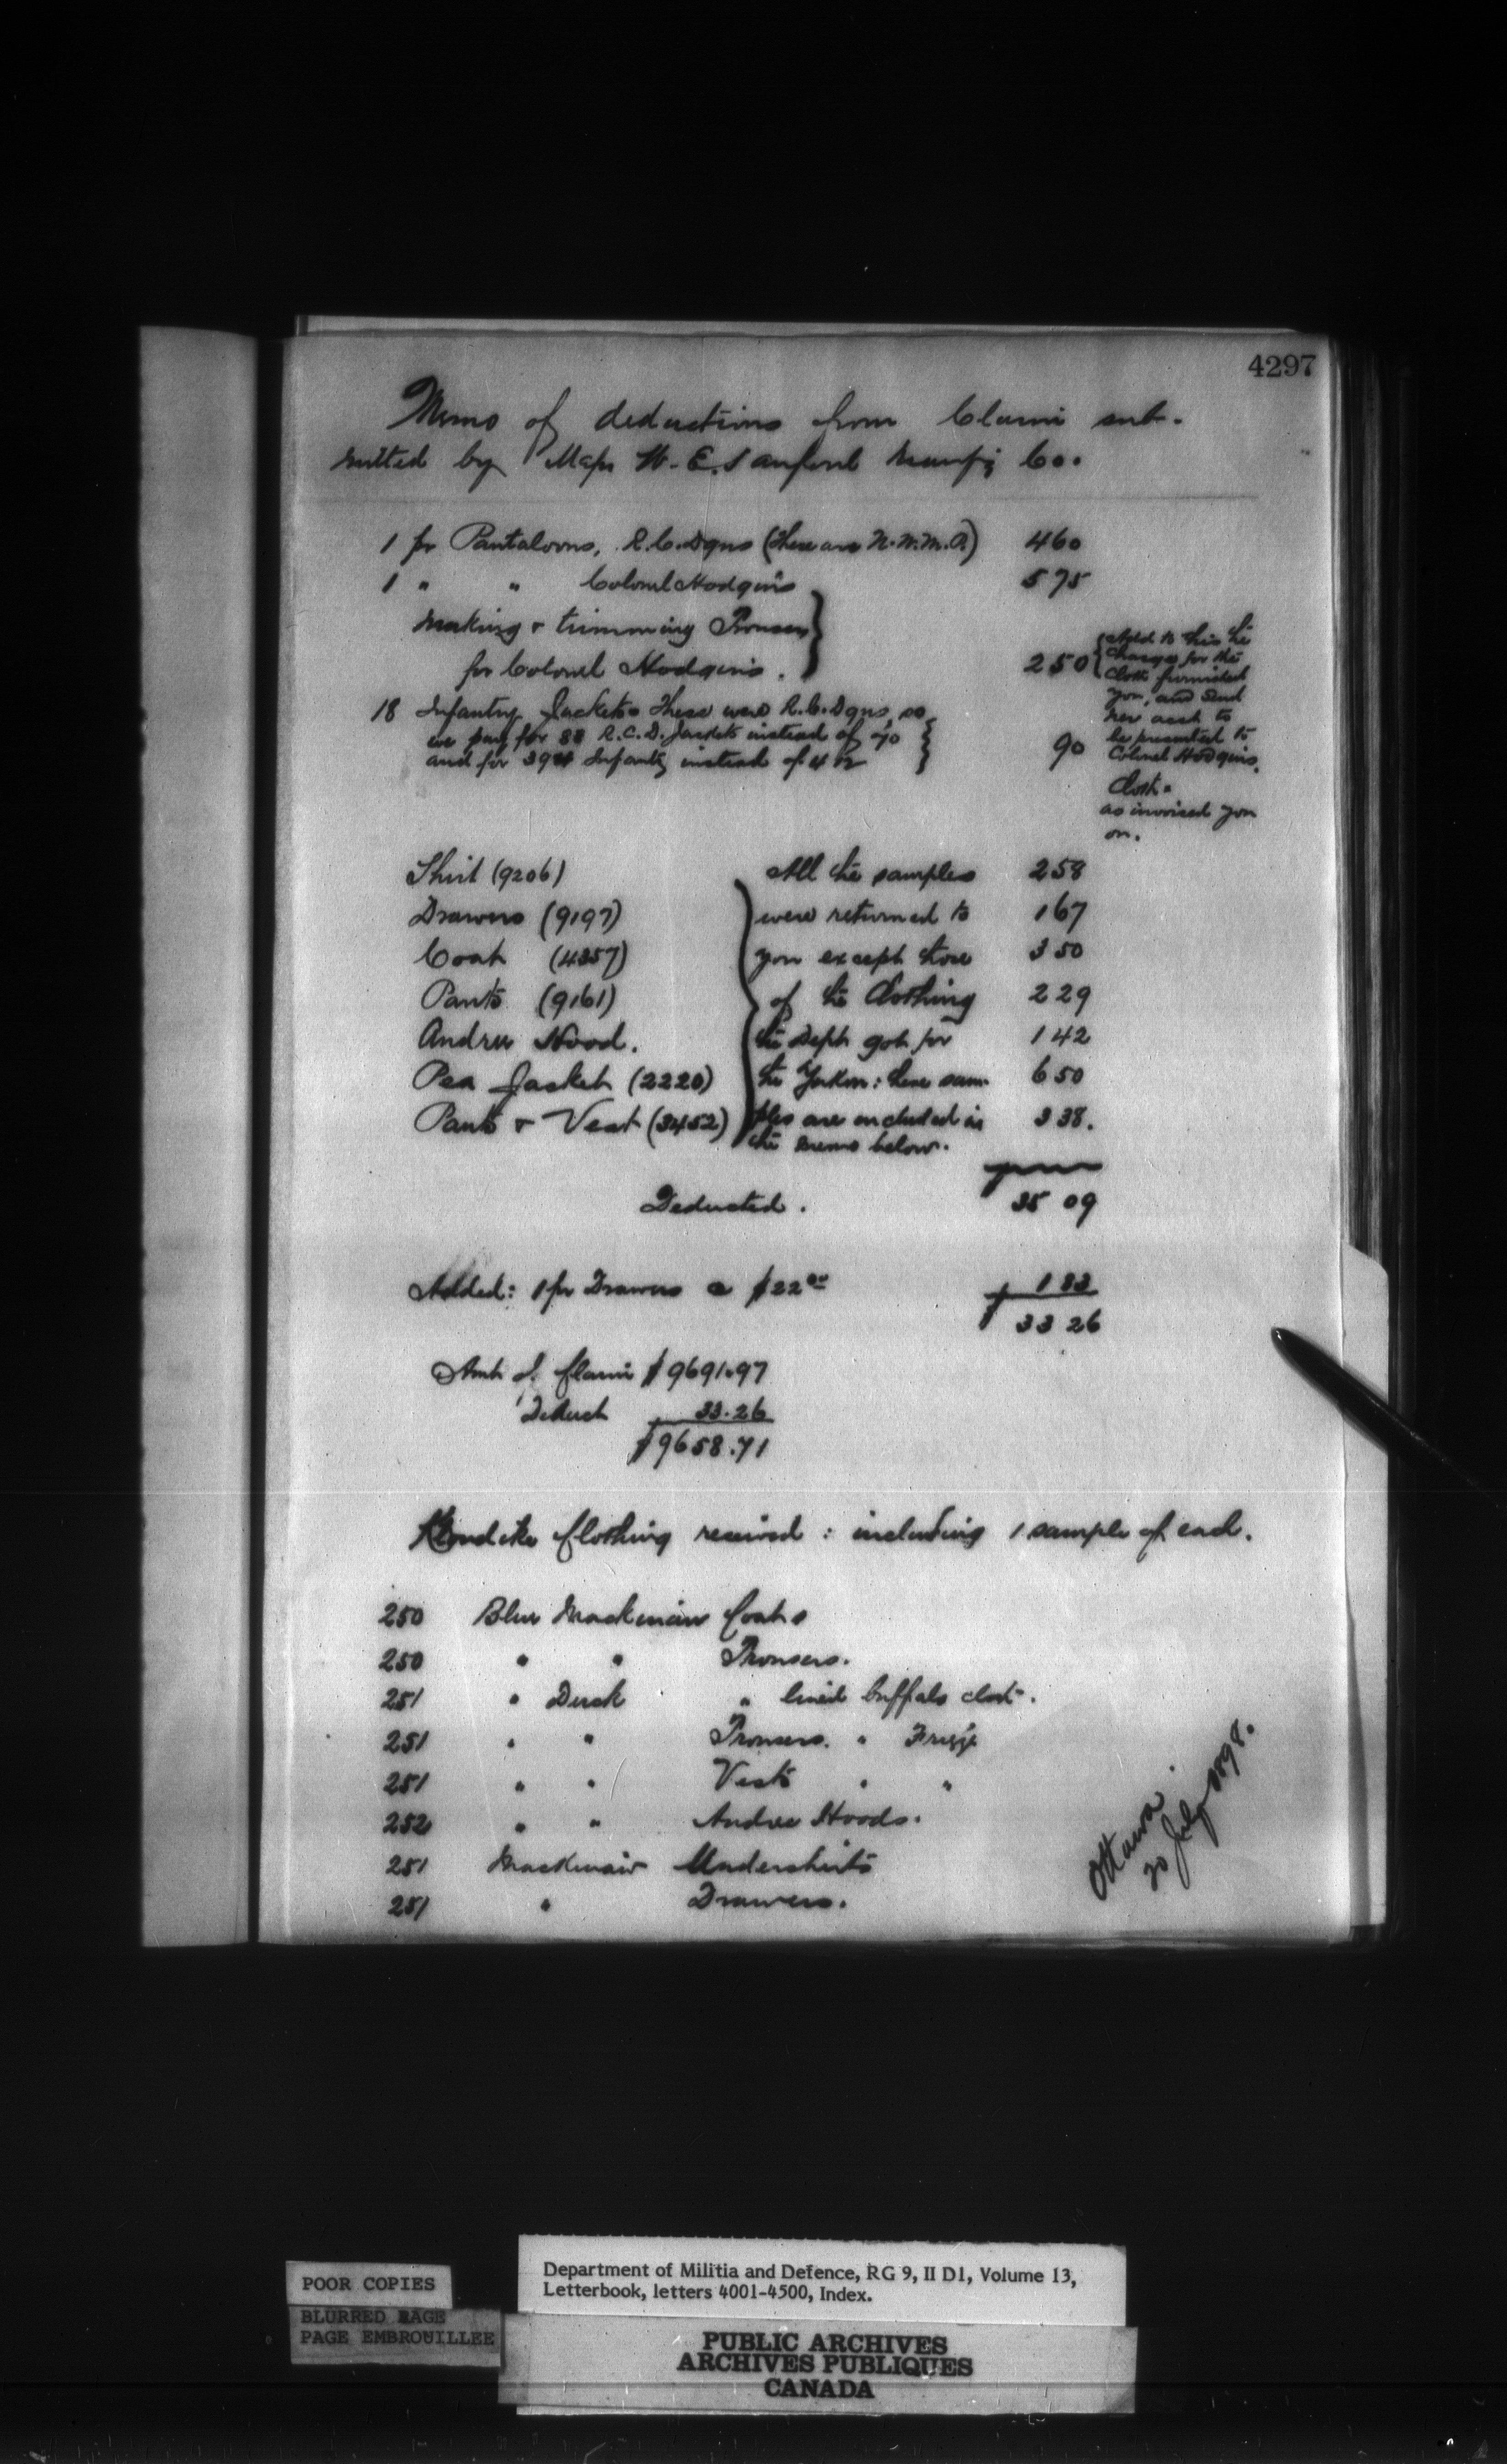 4297
Memo of deductions from Claim sub-
mitted by Mess W. E. Sanford Manufg Co.
1 pr Pantaloons, R.C.Dgns (these are N.W.M.P.) 460
1 " " Colonel Hodgins 575
Making & trimming Trousers
for Colonel Hodgins. 250
Add to this the
charges for the
cloth furnished
you, and send
new acct to
be presented to
Colonel Hodgins.
Cloth
as invoiced you
on.
18 Infantry Jackets These were R.C.Dgns, so
we pay for 88 R.C.D. Jackets instead of 70
and for 394 Infantry instead of 412 90
Shirt (9206) All the samples 258
Drawers (9197) were returned to 167
Coat (4357) you except those 350
Pants (9161) of the Clothing 229
Andree Hood. the Dept got for 142
Pea Jacket (2220) the Yukon: these sam- 650
Pants & Vest (3452) ples are included in 338.
the memo below.
Deducted. 35 09
Added: 1 pr Drawers @ $22.00 1 83
$ 33 26
Amt of Claim $9691.97
Deduct 33.26
$9658.71
Klondike Clothing received: including 1 sample of each.
250 Blue Mackinaw Coats
250 " " Trousers.
251 " Duck " lined buffalo cloth.
251 " " Trousers. " Frieze
251 " " Vests " "
252 " " Andree Hoods.
251 Mackinaw Undershirts
251 " Drawers.
Ottawa.
20 July 1898.
POOR COPIES
BLURRED PAGE
PAGE EMBROUILLEE
Department of Militia and Defence, RG 9, II D1, Volume 13,
Letterbook, letters 4001-4500, Index.
PUBLIC ARCHIVES
ARCHIVES PUBLIQUES
CANADA